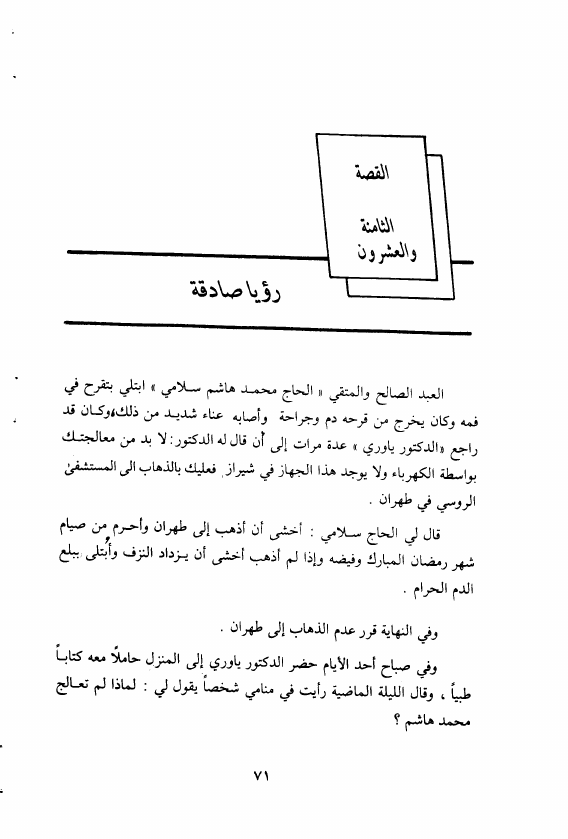 القصة
الثامنة
والعشرون
رؤيا صادقة
العبد الصالح والمتقي « الحاج محمد هاشم سلامي » ابتلي بتقرح في
فمه وكان يخرج من قرحه دم وجراحة وأصابه عناء شديد من ذلك، وكان قد
راجع «الدكتور ياوري » عدة مرات إلى أن قال له الدكتور: لا بد من معالجتك
بواسطة الكهرباء ولا يوجد هذا الجهاز في شيراز. فعليك بالذهاب الى المستشفى
الروسي في طهران .
قال لي الحاج سلامي : أخشى أن أذهب إلى طهران وأحرم من صيام
شهر رمضان المبارك وفيضه وإذا لم أذهب أخشى أن يزداد النزف وأُبتلى ببلع
الدم الحرام .
وفي النهاية قرر عدم الذهاب إلى طهران .
وفي صباح أحد الأيام حضر الدكتور ياوري إلى المنزل حاملاً معه كتاباً
طبياً ، وقال الليلة الماضية رأيت في منامي شخصاً يقول لي : لماذا لم تعالج
محمد هاشم ؟
٧١